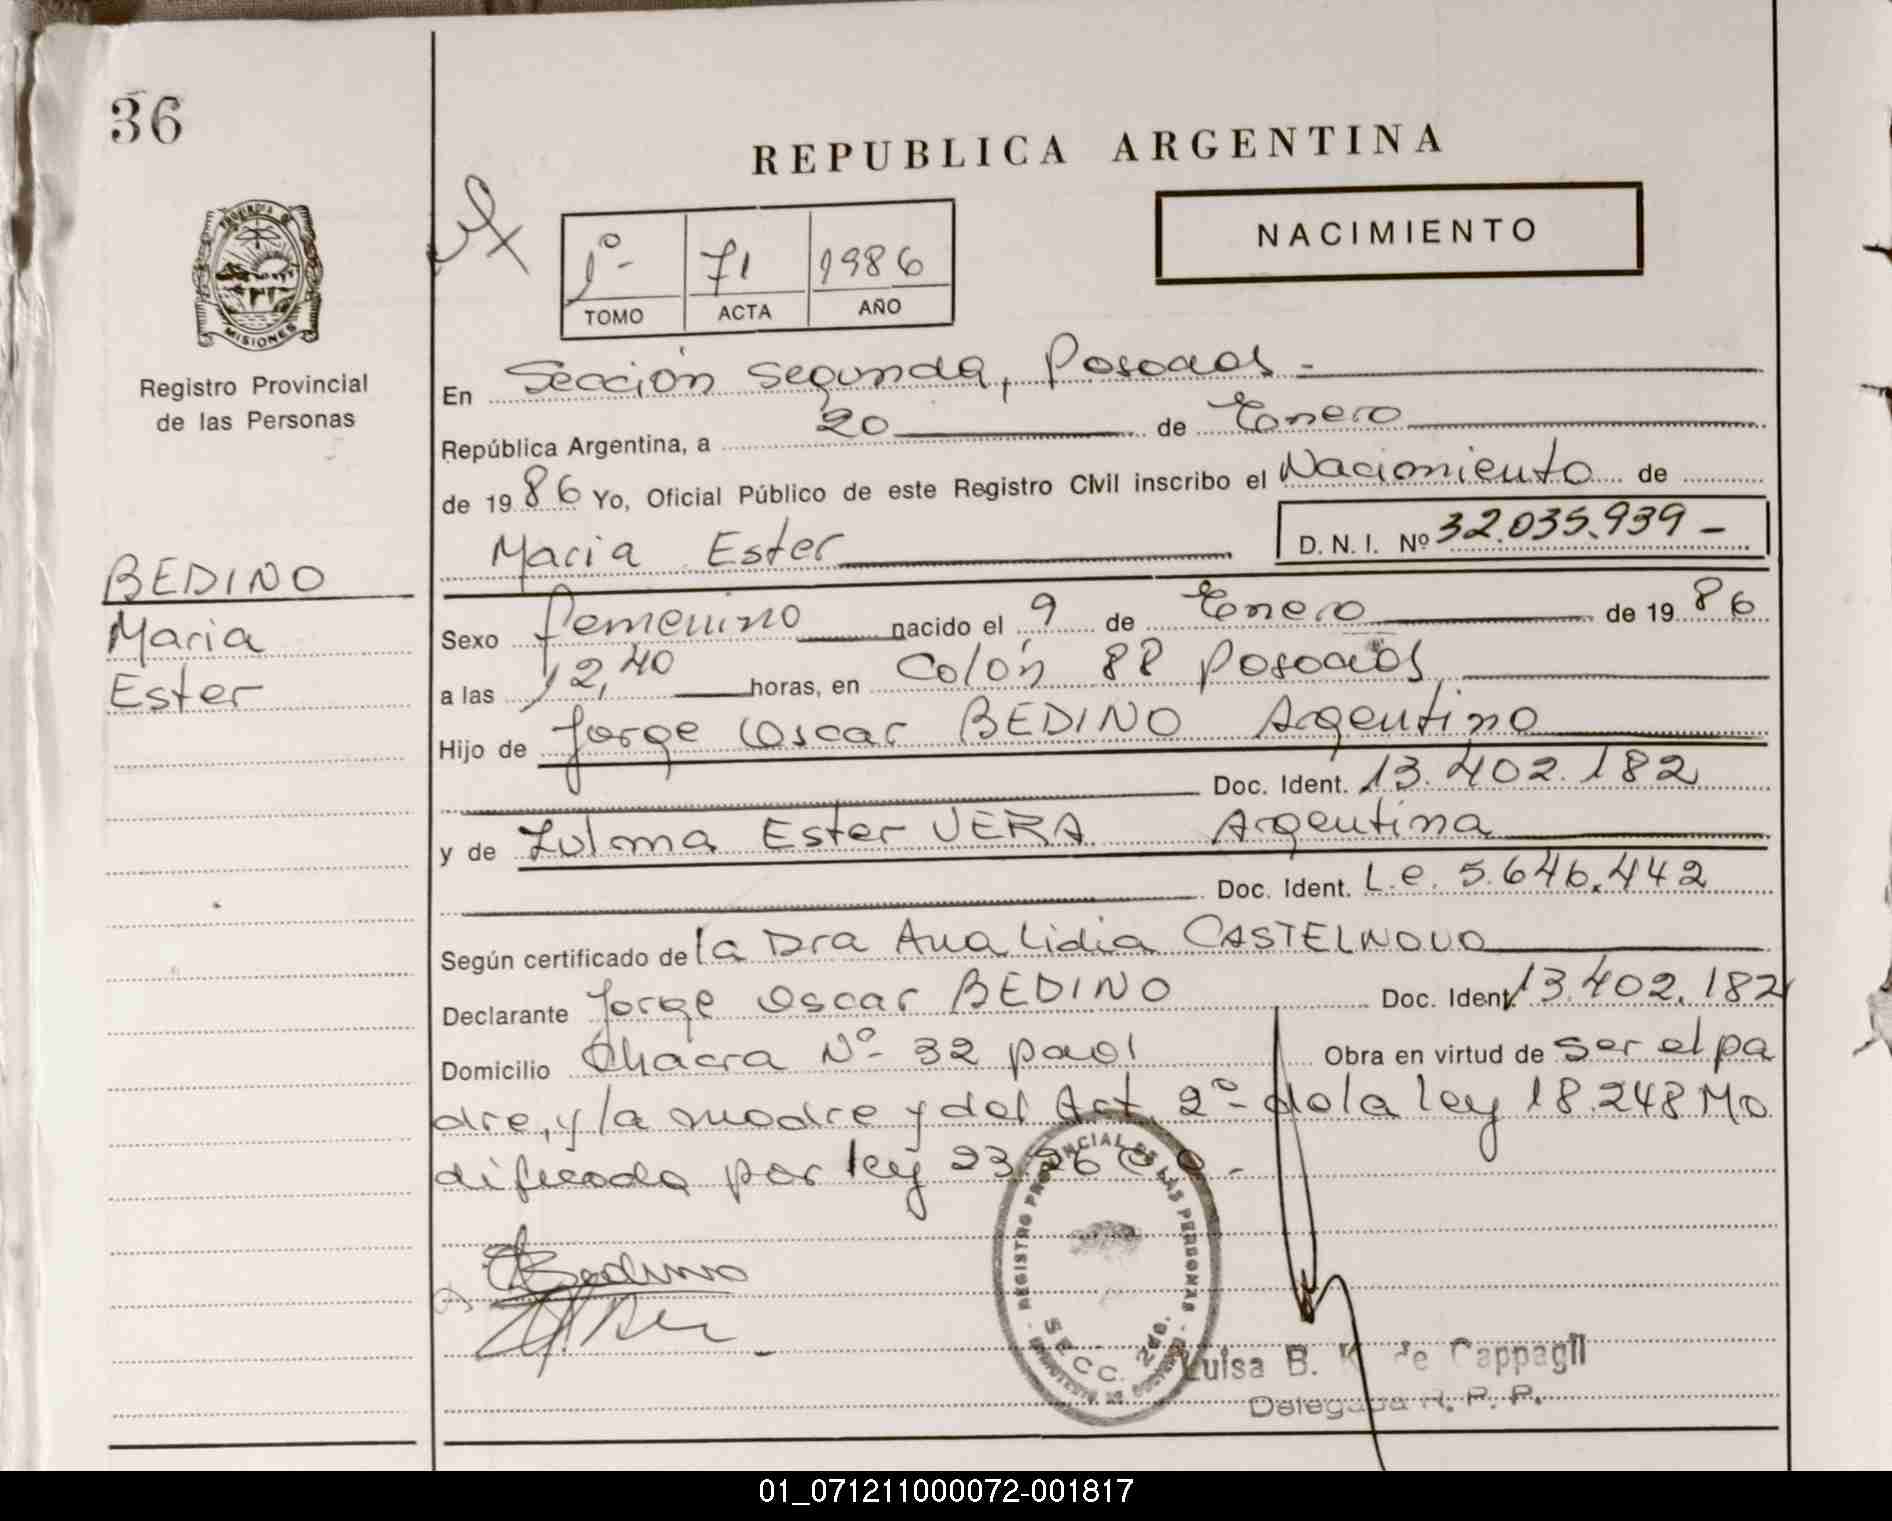 36
REPUBLICA ARGENTINA
NACIMIENTO
1º- 71 1986
TOMO ACTA AÑO
PROVINCIA DE MISIONES
Registro Provincial
de las Personas
En Sección Segunda, Posadas -
República Argentina, a 20 de Enero
de 1986 Yo, Oficial Público de este Registro Civil inscribo el Nacimiento de
Maria Ester D. N. I. Nº 32.035.939 -
BEDINO
Maria
Ester
Sexo femenino nacido el 9 de Enero de 1986
a las 12,40 horas, en Colón 88 Posadas
Hijo de Jorge Oscar BEDINO Argentino
Doc. Ident. 13.402.182
y de Zulma Ester VERA Argentina
Doc. Ident. L.e. 5.646.442
Según certificado de la Dra Ana Lidia CASTELNOVO
Declarante Jorge Oscar BEDINO Doc. Ident 13.402.182
Domicilio Chacra Nº- 32 Obra en virtud de ser el pa
dre, y la madre y del Art. 2º- de la ley 18.248 Mo
dificada por ley 23.26 -
Bedino
REGISTRO PROVINCIAL DE LAS PERSONAS
SECC. 2da.
Luisa B. K. de Cappagli
Delegada R. P. P.
01_071211000072-001817